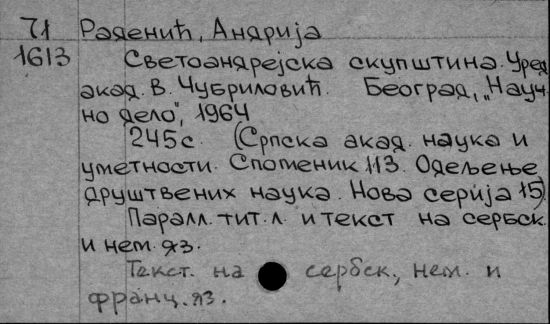 71 Раденић, Андрија
1613 Светоандрејска скупштина. Уред.
акад. В. Чубриловић. Београд, „Науч-
но дело", 1964
245 с. (Српска акад. наука и
уметности. Споменик 113. Одељење
друштвених наука. Нова серија 15)
Паралл. тит. л. и текст на сербск.
и нем. яз.
Текст. на сербск., нем. и
франц. яз.